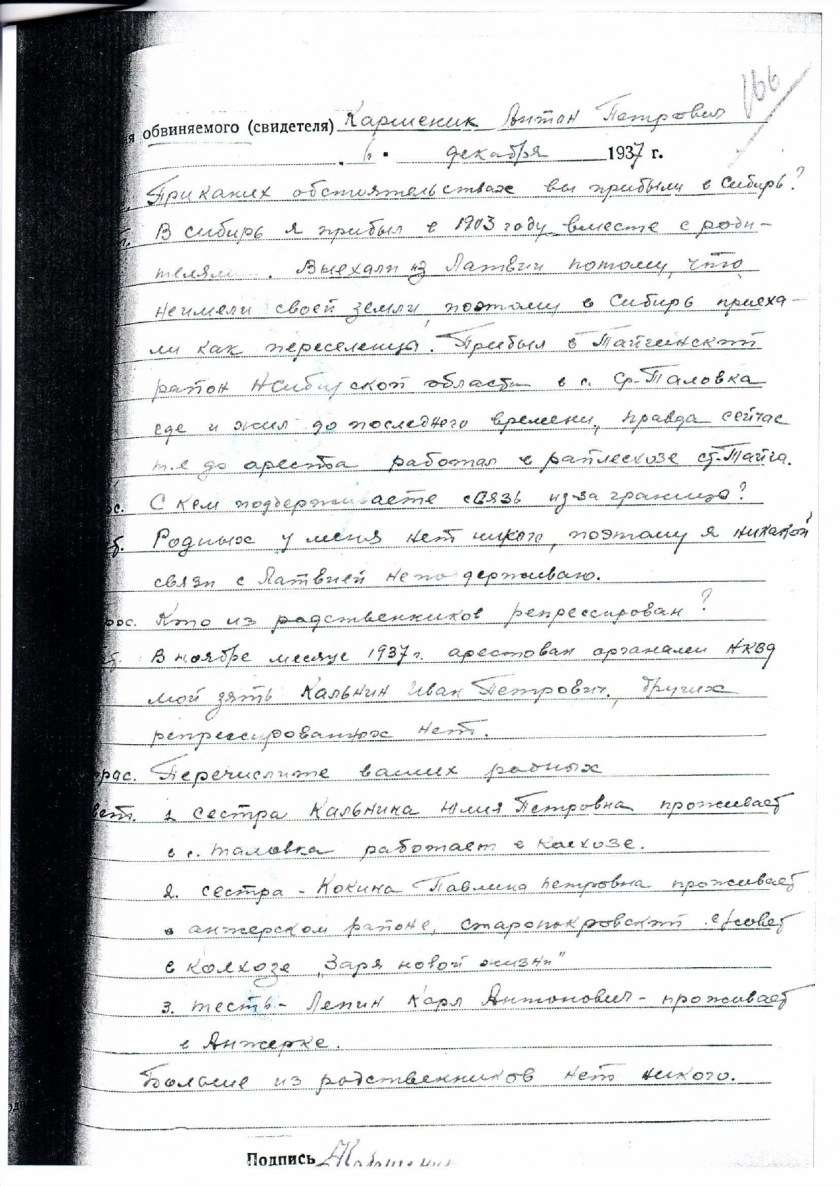 166
я обвиняемого (свидетеля) Каршеник Антон Петрович
6 декабря 1937 г.
При каких обстоятельствах вы прибыли в Сибирь?
В сибирь я прибыл в 1903 году вместе с роди-
телям . Выехали из Латвии потому, что
неимели своей земли, поэтому в Сибирь приеха-
ли как переселенцы. Прибыл в Тайгинский
район Нсибирской области в с. Ср-Таловка
где и жил до последнего времени, правда сейчас
т.е до ареста работал в раплесхозе ст-Тайга.
ос. С кем поддерживаете связь из-за границы?
Родных у меня нет никого, поэтому я никакой
связи с Латвией не по держиваю.
рос. Кто из родственников репрессирован?
В ноябре месяце 1937 г. арестован органами НКВД
мой зять Кальнин Иван Петрович, других
репрессированных нет.
рос. Перечислите ваших родных
вет. 1. сестра Кальнина Юлия Петровна проживает
в с. Таловка работает в колхозе.
2. сестра - Кокина Павлина Петровна проживает
в анжерском районе, старопокровский с/совет
в колхозе „Заря новой жизни"
3. тесть - Лепин Карл Антонович - проживает
в Анжерке.
Больше из родственников нет никого.
Подпись